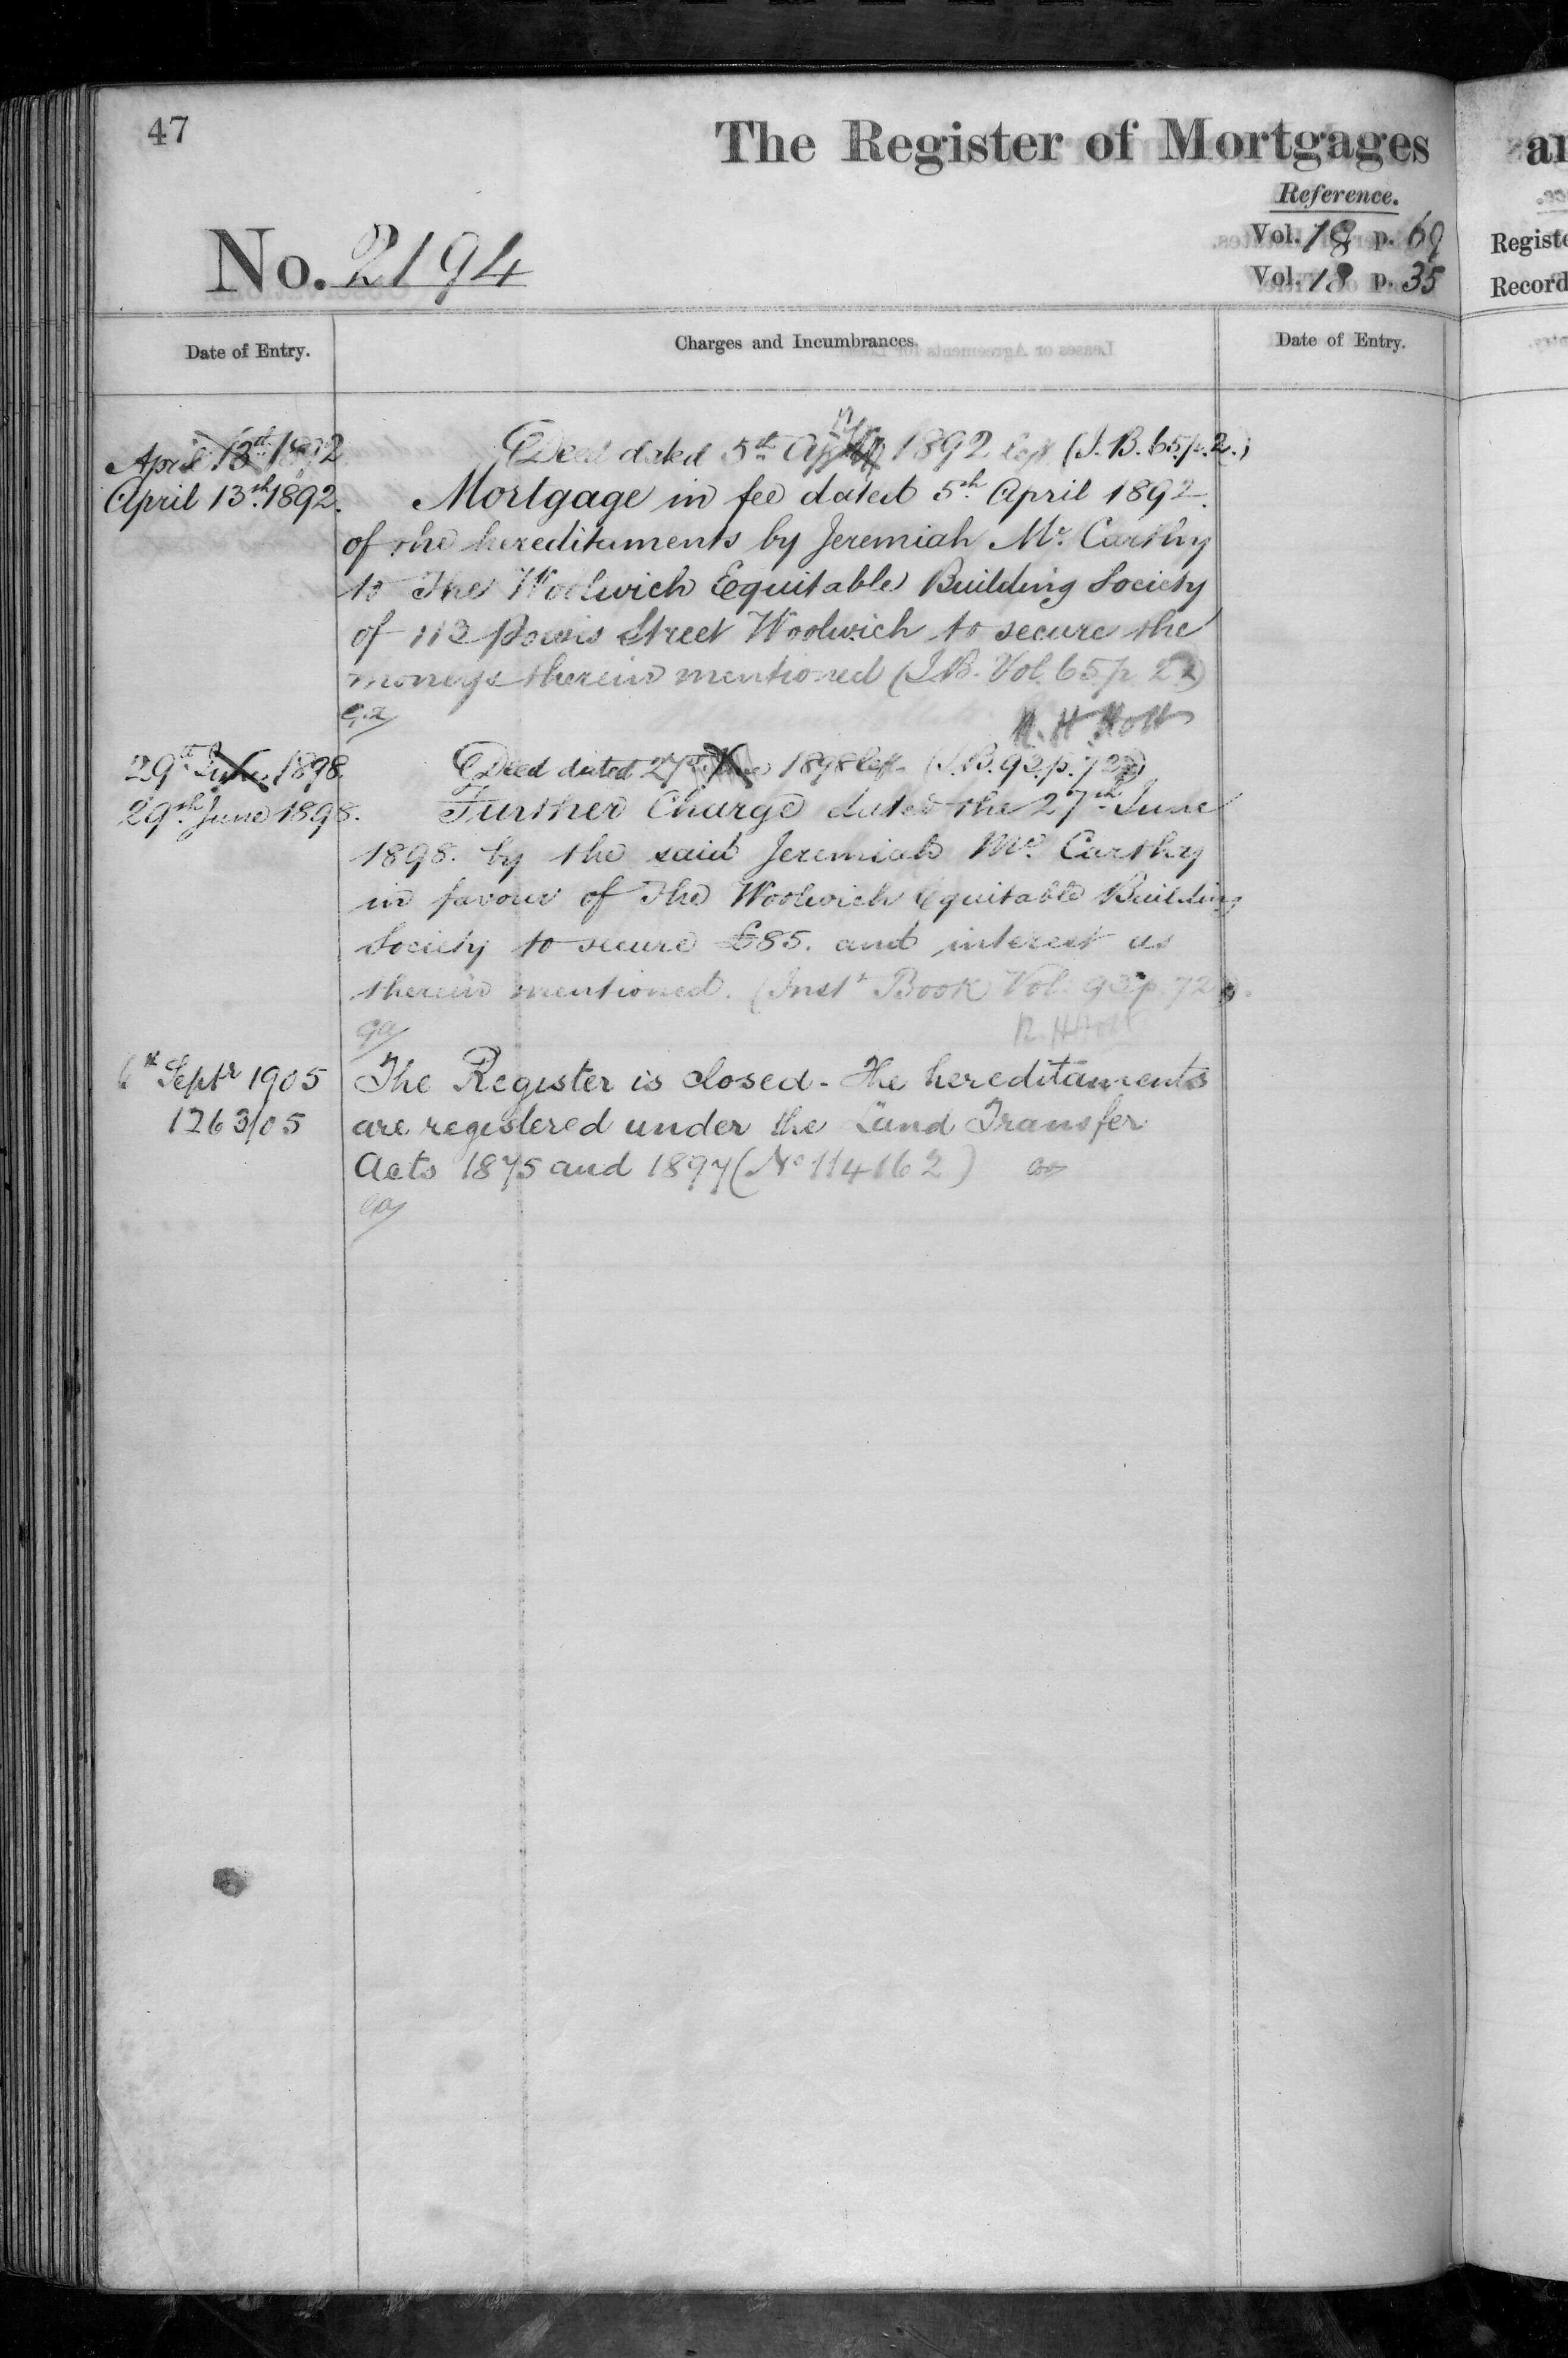 47
The Register of Mortgages
Reference.
No. 2194
Vol. 18 p. 69
Vol. 18 p. 35
Registe
Record
Date of Entry.
Charges and Incumbrances
Date of Entry.
April 13th 1892
Deed dated 5th April 1892 left (I.B. 65 p. 2.)
April 13th 1892.
Mortgage in fee dated 5th April 1892.
of the hereditaments by Jeremiah Mc. Carthy
to The Woolwich Equitable Building Society
of 113 Powis Street Woolwich to secure the
moneys therein mentioned (I.B. Vol. 65 p. 2)
R. H. Holt
29th June 1898.
Deed dated 27th June 1898 left (I.B. 93. p. 72)
29th June 1898.
Further Charge dated the 27th June
1898. by the said Jeremiah Mc. Carthy
in favour of The Woolwich Equitable Building
Society to secure £85. and interest as
therein mentioned. (Inst Book Vol. 93 p. 72).
R. H. Holt
6th Septr 1905
The Register is closed - The hereditaments
1263/05
are registered under the Land Transfer
Acts 1875 and 1897 (No 114162)